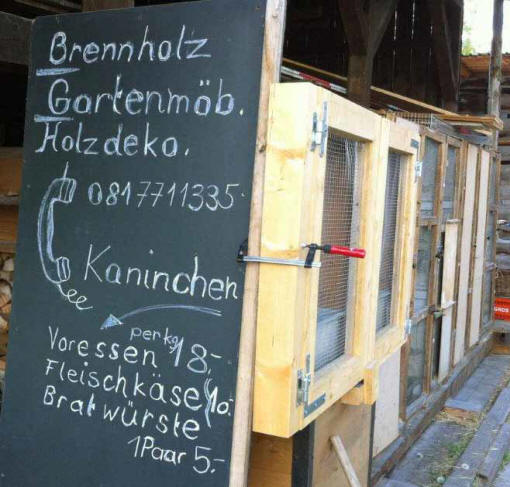 Brennholz
Gartenmöb.
Holzdeko.
0817711335.
Kaninchen
Voressen per kg 18.-
Fleischkäse 10.
Bratwürste
1Paar 5.-